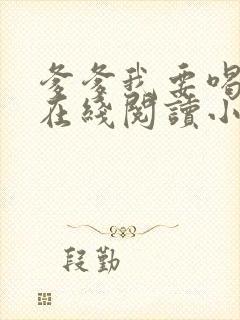 爹爹我要喝
在綫閱讀小
段勤